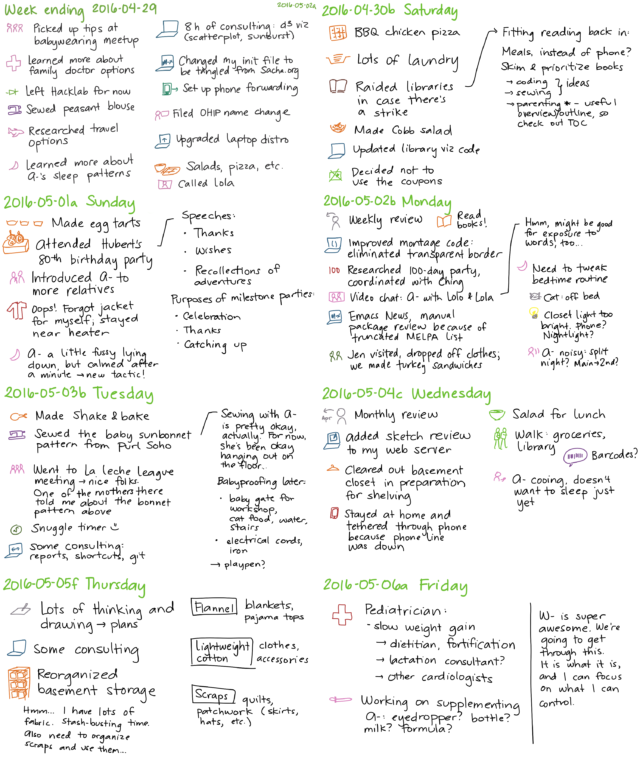 Week ending 2016-04-29
2016-05-02a
Picked up tips at
babywearing meetup
learned more about
family doctor options
left Hacklab for now
Sewed peasant blouse
Researched travel
options
Learned more about
A-'s sleep patterns
8h of consulting: d3 viz
(scatterplot, sunburst)
Changed my init file to
be tangled from Sacha.org
Set up phone forwarding
Filed OHIP name change
Upgraded laptop distro
Salads, pizza, etc.
Called Lola
2016-04-30b Saturday
BBQ chicken pizza
Lots of laundry
Raided libraries
in case there's
a strike
Made Cobb salad
Updated library viz code
Decided not to
use the coupons
Fitting reading back in:
Meals, instead of phone?
Skim & prioritize books
→ coding
→ sewing
} ideas
→ parenting * - useful
overview/outline, so
check out TOC
2016-05-01a Sunday
Made egg tarts
Attended Hubert's
80th birthday party
Introduced A- to
more relatives
Oops! Forgot jacket
for myself, stayed
near heater
A- a little fussy lying
down, but calmed after
a minute → new tactic!
Speeches:
• Thanks
• Wishes
• Recollections of
adventures
Purposes of milestone parties:
• Celebration
• Thanks
• Catching up
2016-05-02b Monday
Weekly review
Read
books!
Improved montage code:
eliminated transparent border
100 Researched 100-day party,
coordinated with Ching
Video chat: A- with Lolo & Lola
Emacs News, manual
package review because of
truncated MELPA list
Jen visited, dropped off clothes;
we made turkey sandwiches
Hmm, might be good
for exposure to
words, too...
Need to tweak
bedtime routine
Cat: off bed
Closet light too
bright. Phone?
Nightlight?
A- noisy: split
night? Main→2nd?
2016-05-03b Tuesday
Made Shake & bake
Sewed the baby sunbonnet
pattern from Purl Soho
Went to La leche league
meeting → nice folks.
One of the mothers there
told me about the bonnet
pattern above
Snuggle timer
Some consulting:
reports, shortcuts, git
Sewing with A-
is pretty okay,
actually. For now,
she's been okay
hanging out on
the floor..
Babyproofing later:
• baby gate for
workshop,
cat food, water,
stairs
• electrical cords,
iron
→ playpen?
2016-05-04c Wednesday
Apr
Monthly review
added sketch review
to my web server
Cleared out basement
closet in preparation
for shelving
Stayed at home and
tethered through phone
because phone line
was down
Salad for lunch
Walk: groceries,
library
Barcodes?
A- cooing, doesn't
want to sleep just
yet
2016-05-05f Thursday
Lots of thinking and
drawing → plans
Some consulting
Reorganized
basement storage
Hmm... I have lots of
fabric. Stash-busting time.
Also need to organize
scraps and use them...
Flannel blankets,
pajama tops
Lightweight
cotton
clothes,
accessories
Scraps quilts,
patchwork (skirts,
hats, etc.)
2016-05-06a Friday
Pediatrician:
- slow weight gain
→ dietitian, fortification
→ lactation consultant?
→ other cardiologists
Working on supplementing
A-: eyedropper? bottle?
milk? formula?
W- is super
awesome. We're
going to get
through this.
It is what it is,
and I can focus
on what I can
control.